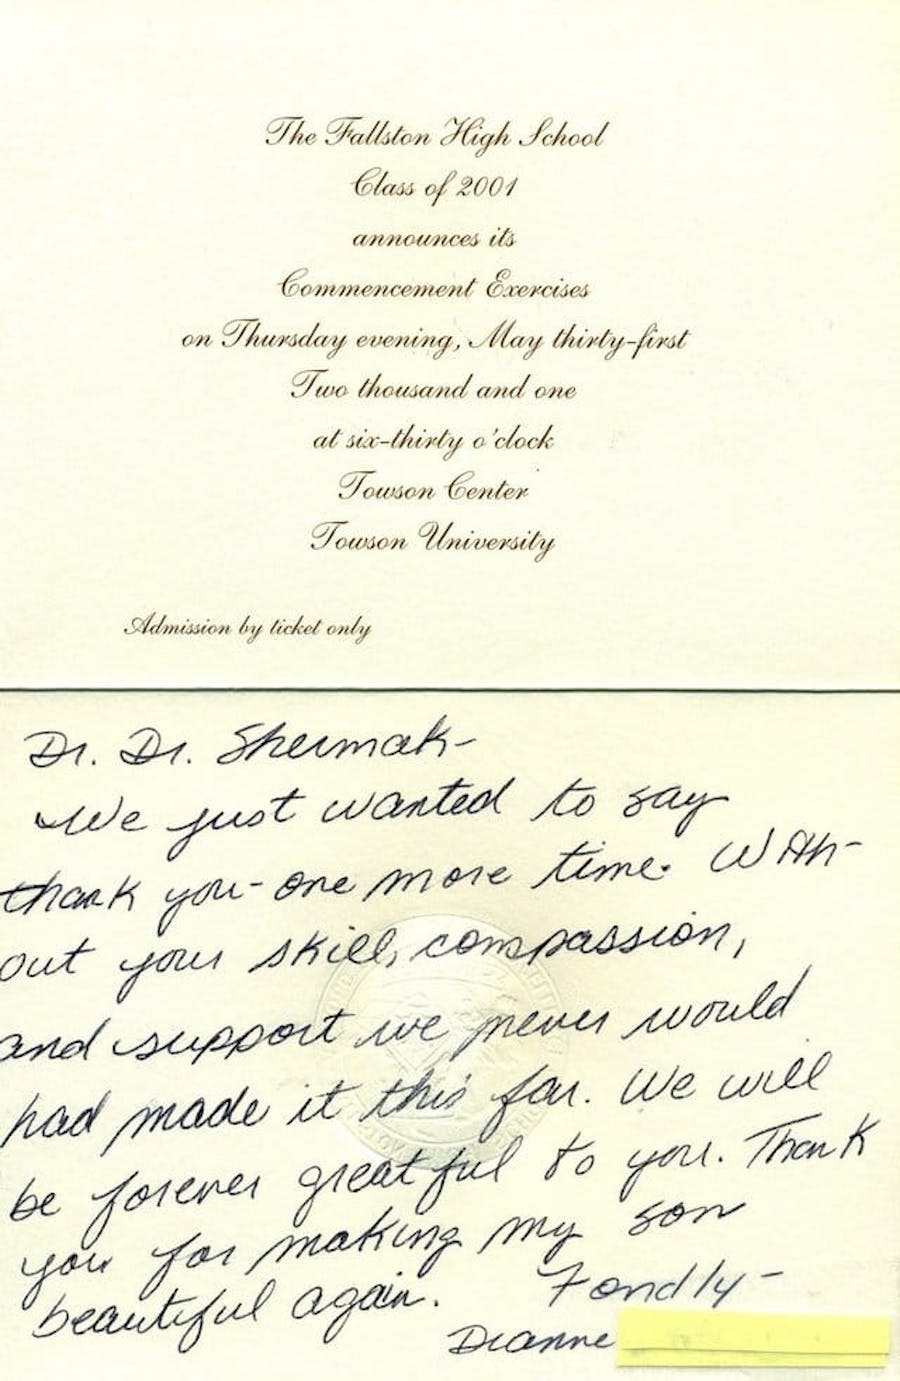 The Fallston High School
Class of 2001
announces its
Commencement Exercises
on Thursday evening, May thirty-first
Two thousand and one
at six-thirty o'clock
Towson Center
Towson University
Admission by ticket only
Dr. Dr. Shermak-
We just wanted to say
thank you - one more time. With-
out your skill, compassion,
and support we never would
had made it this far. We will
be forever greatful to you. Thank
you for making my son
beautiful again. Fondly -
Dianne